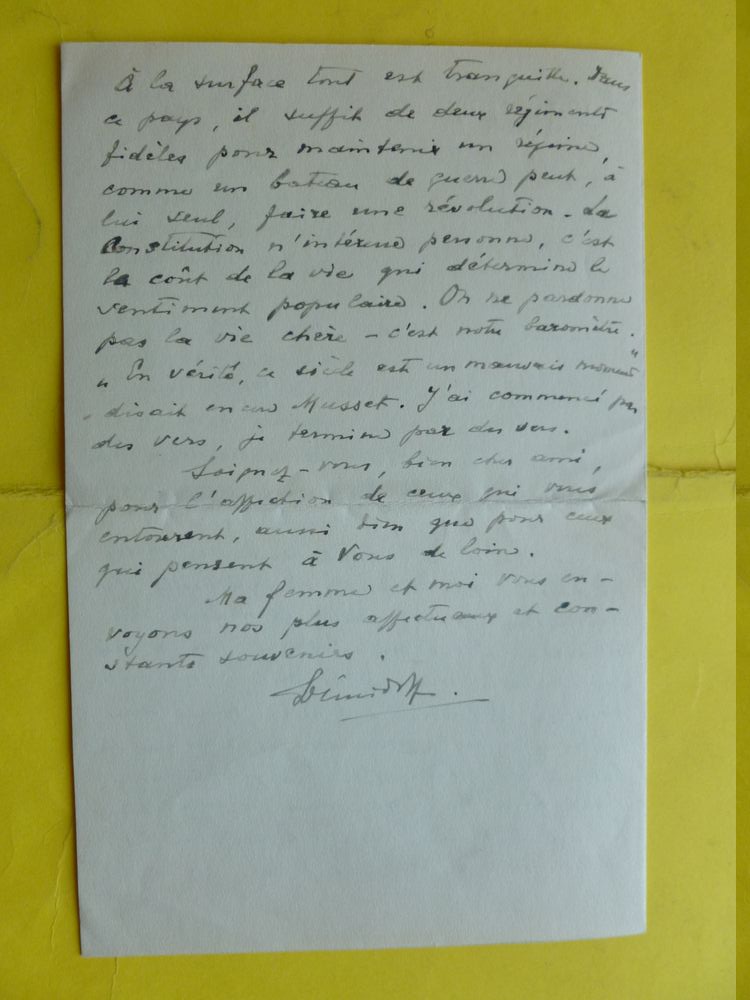 À la surface tout est tranquille. Dans
ce pays, il suffit de deux régiments
fidèles pour maintenir un régime,
comme un bateau de guerre peut, à
lui seul, faire une révolution. La
Constitution n'intéresse personne, c'est
le coût de la vie qui détermine le
sentiment populaire. On ne pardonne
pas la vie chère – c'est notre baromètre.
„ En vérité, ce siècle est un mauvais moment "
– disait encore Musset. J'ai commencé par
des vers, je termine par des vers.
Soignez-vous, bien cher ami,
pour l'affection de ceux qui vous
entourent, aussi bien que pour ceux
qui pensent à Vous de loin.
Ma femme et moi vous en-
voyons nos plus affectueux et con-
stants souvenirs.